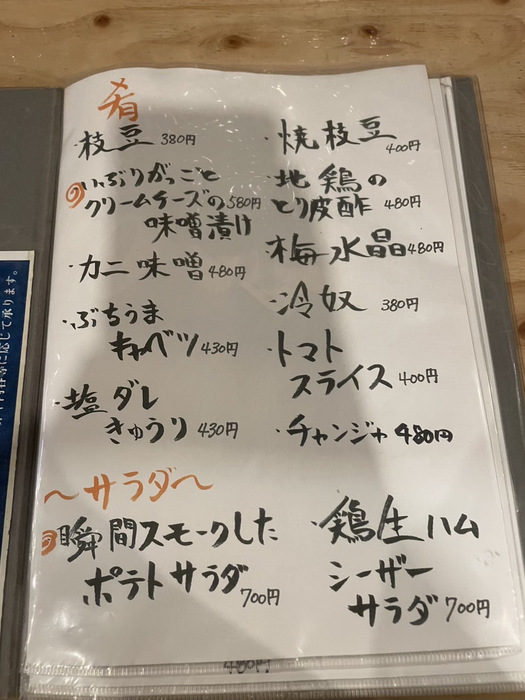 肴
・枝豆 380円
いぶりがっこと
クリームチーズの 580円
味噌漬け
・カニ味噌 480円
・ぶちうま
キャベツ 430円
・塩ダレ
きゅうり 430円
・焼枝豆 400円
・地鶏の
とり皮酢 480円
・梅水晶 480円
・冷奴 380円
・トマト
スライス 400円
・チャンジャ 480円
〜サラダ〜
瞬間スモークした
ポテトサラダ 700円
・鶏生ハム
シーザー
サラダ 700円
480円
に応じて承ります。